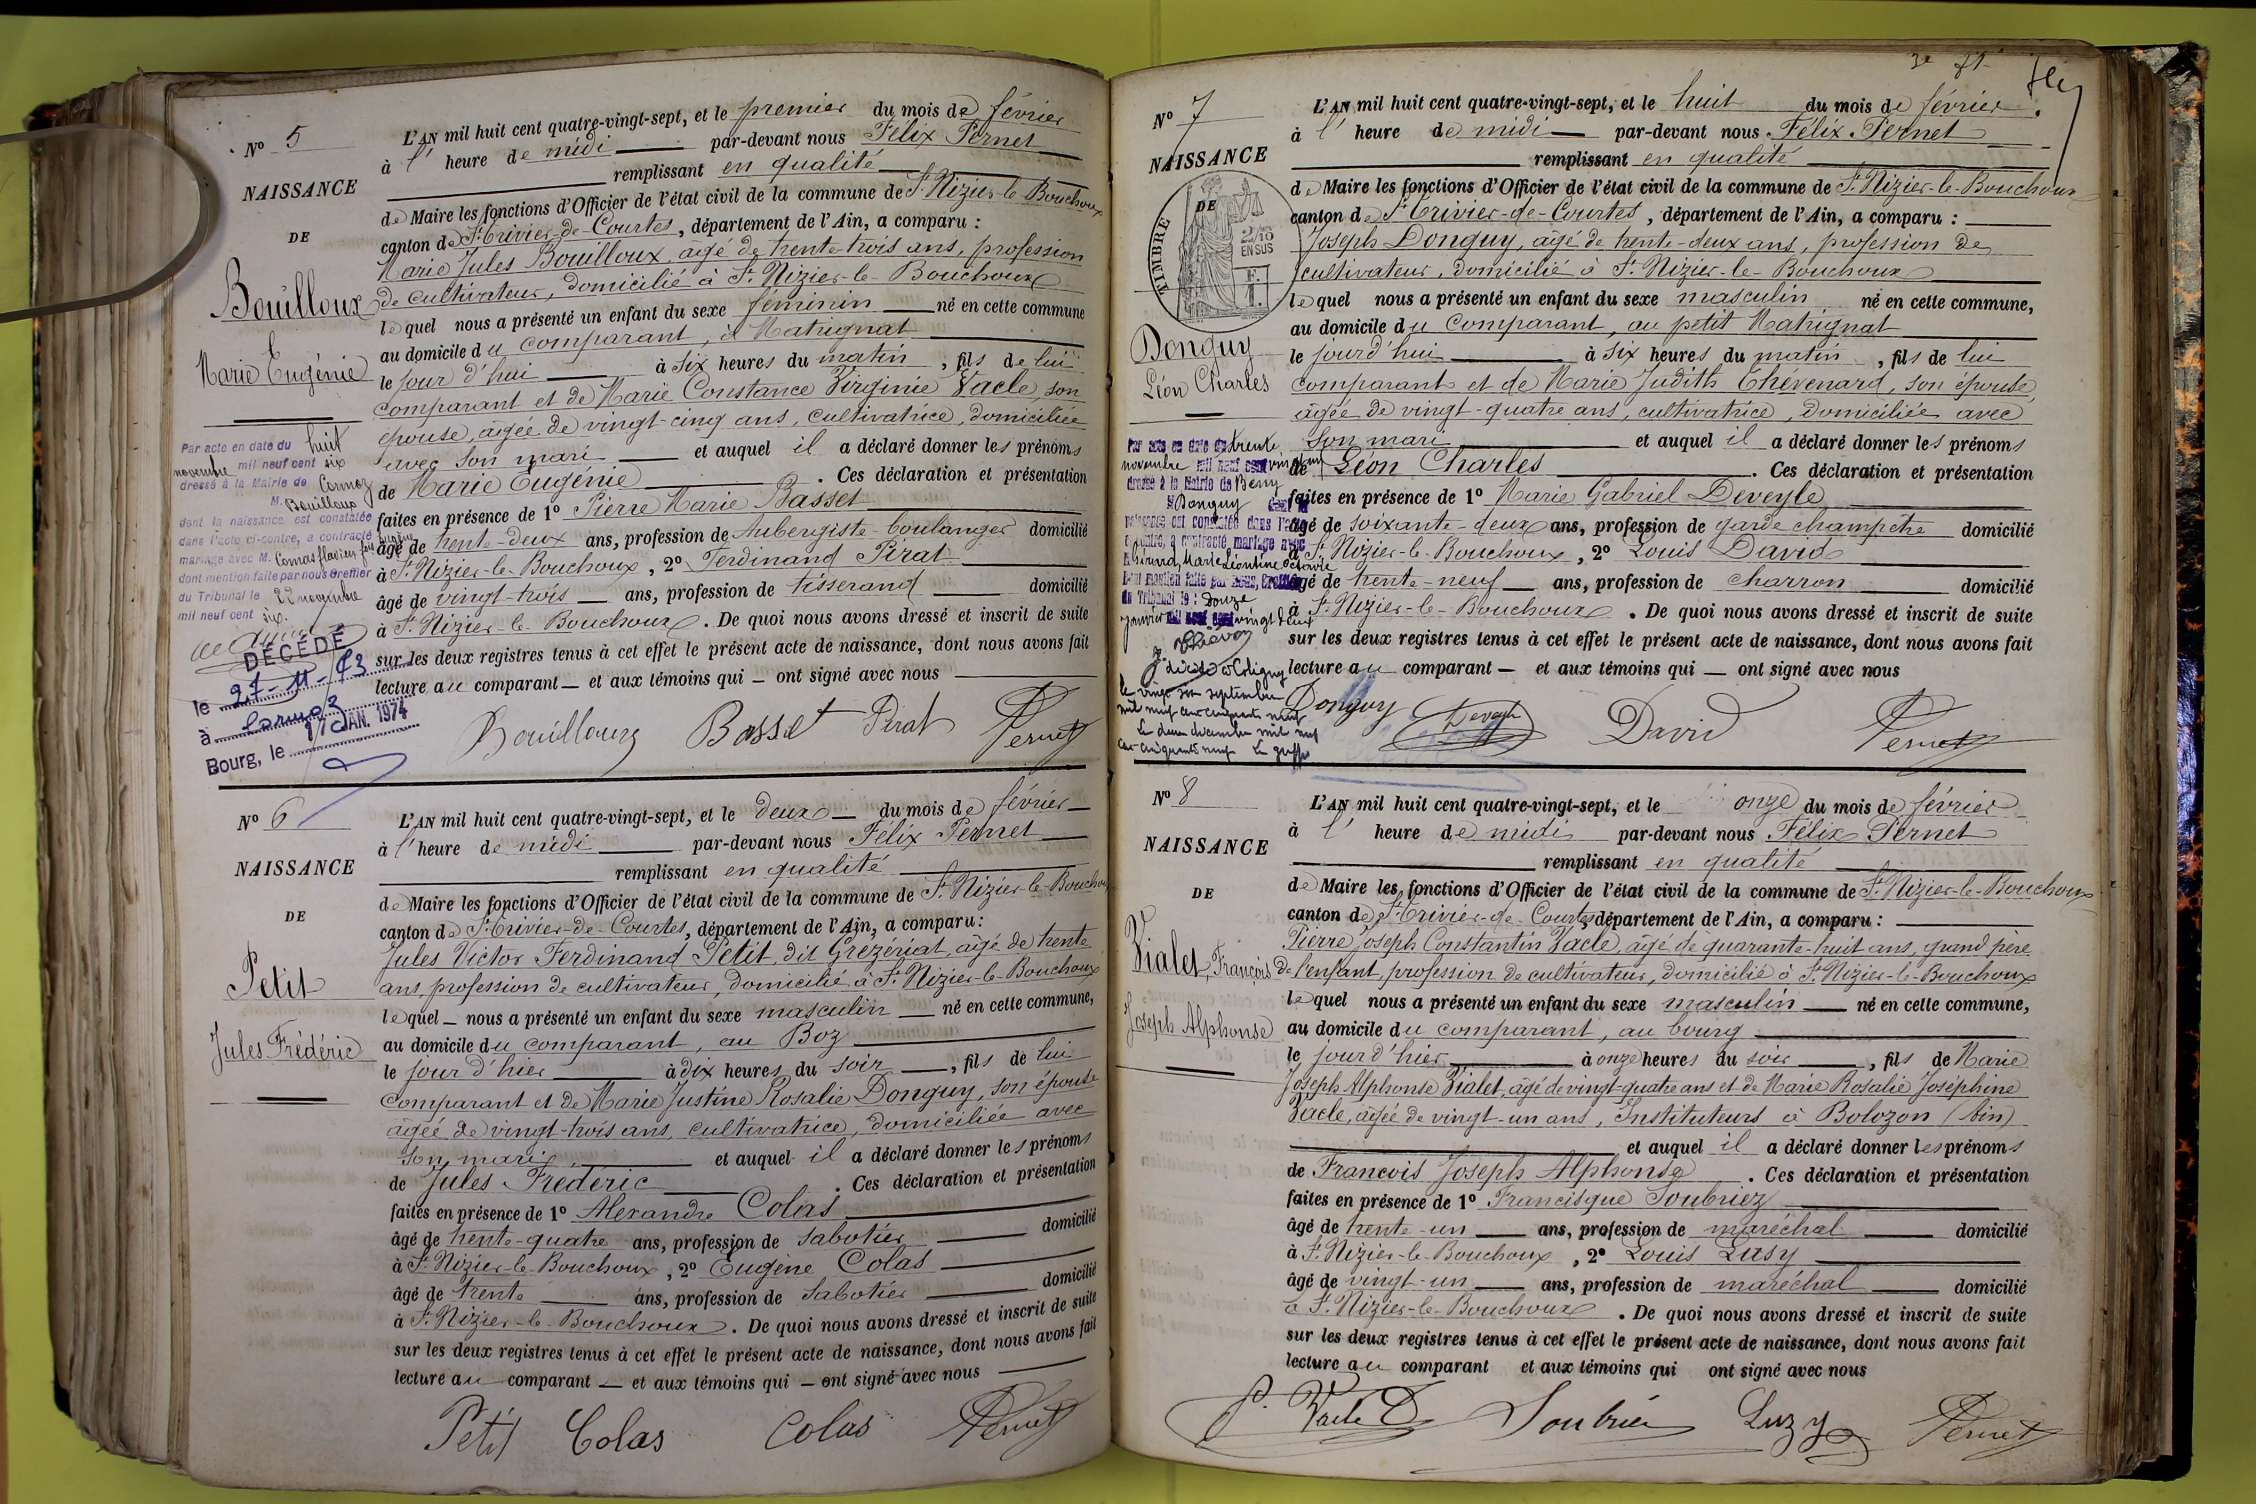 N° 5
NAISSANCE
DE
Bouilloux
Marie Eugénie
Par acte en date du huit
novembre mil neuf cent six
dressé à la Mairie de Cormoz
M. Bouilloux
dont la naissance est constatée
dans l'acte ci-contre, a contracté
mariage avec M. Comas flavien
dont mention faite par nous Greffier
du Tribunal le 22 novembre
mil neuf cent six.
DÉCÉDÉ
le 27-11-73
à Cormoz
Bourg, le 17 JAN. 1974
L'AN mil huit cent quatre-vingt-sept, et le premier du mois de février
à l' heure de midi par-devant nous Félix Pernet
remplissant en qualité
de Maire les fonctions d'Officier de l'état civil de la commune de St. Nizier-le-Bouchoux
canton de St. Trivier-de-Courtes, département de l'Ain, a comparu :
Marie Jules Bouilloux, âgé de trente-trois ans, profession
de cultivateur, domicilié à St. Nizier-le-Bouchoux
lequel nous a présenté un enfant du sexe féminin né en cette commune
au domicile du comparant, à Matrignat
le jour d'hui à six heures du matin, fils de lui
comparant et de Marie Constance Virginie Vacle, son
épouse, âgée de vingt-cinq ans, cultivatrice, domiciliée
avec son mari et auquel il a déclaré donner les prénoms
de Marie Eugénie. Ces déclaration et présentation
faites en présence de 1° Pierre Marie Basset
âgé de trente-deux ans, profession de Aubergiste-boulanger domicilié
à St. Nizier-le-Bouchoux, 2° Ferdinand Pirat
âgé de vingt-trois ans, profession de tisserand domicilié
à St. Nizier-le-Bouchoux. De quoi nous avons dressé et inscrit de suite
sur les deux registres tenus à cet effet le présent acte de naissance, dont nous avons fait
lecture au comparant — et aux témoins qui — ont signé avec nous
Bouilloux Basset Pirat Pernet
N° 6
NAISSANCE
DE
Petit
Jules Frédéric
L'AN mil huit cent quatre-vingt-sept, et le deux du mois de février
à l'heure de midi par-devant nous Félix Pernet
remplissant en qualité
de Maire les fonctions d'Officier de l'état civil de la commune de St. Nizier-le-Bouchoux
canton de St. Trivier-de-Courtes, département de l'Ain, a comparu :
Jules Victor Ferdinand Petit, dit Grezériat, âgé de trente
ans, profession de cultivateur, domicilié à St. Nizier-le-Bouchoux
lequel — nous a présenté un enfant du sexe masculin — né en cette commune,
au domicile du comparant, au Boz
le jour d'hier à dix heures du soir, fils de lui
comparant et de Marie Justine Rosalie Donguy, son épouse
âgée de vingt-trois ans, cultivatrice, domiciliée avec
son mari et auquel il a déclaré donner les prénoms
de Jules Frédéric. Ces déclaration et présentation
faites en présence de 1° Alexandre Colas
âgé de trente-quatre ans, profession de sabotier domicilié
à St. Nizier-le-Bouchoux, 2° Eugène Colas
âgé de trente ans, profession de sabotier domicilié
à St. Nizier-le-Bouchoux. De quoi nous avons dressé et inscrit de suite
sur les deux registres tenus à cet effet le présent acte de naissance, dont nous avons fait
lecture au comparant — et aux témoins qui — ont signé avec nous
Petit Colas Colas Pernet
N° 7
NAISSANCE
DE
TIMBRE
2/10
EN SUS
Donguy
Léon Charles
Par acte en date du trente
novembre mil neuf cent vingt un
dressé à la Mairie de Beny
M. Donguy dont la
naissance est constatée dans l'acte
ci-contre, a contracté mariage avec
Marie Léontine Octavie
Dont mention faite par nous, Greffier
du Tribunal le : Douze
janvier mil neuf cent vingt deux
décédé à Coligny
le vingt six septembre
mil neuf cent cinquante neuf
Le deux décembre mil neuf
cent cinquante neuf Le greffier
L'AN mil huit cent quatre-vingt-sept, et le huit du mois de février.
à l' heure de midi par-devant nous Félix Pernet
remplissant en qualité
de Maire les fonctions d'Officier de l'état civil de la commune de St. Nizier-le-Bouchoux
canton de St. Trivier-de-Courtes, département de l'Ain, a comparu :
Joseph Donguy, âgé de trente-deux ans, profession de
cultivateur, domicilié à St. Nizier-le-Bouchoux
lequel nous a présenté un enfant du sexe masculin né en cette commune,
au domicile du comparant, au petit Matrignat
le jourd'hui à six heures du matin, fils de lui
comparant et de Marie Judith Thévenard, son épouse,
âgée de vingt-quatre ans, cultivatrice, domiciliée avec
son mari et auquel il a déclaré donner les prénoms
de Léon Charles. Ces déclaration et présentation
faites en présence de 1° Marie Gabriel Deveyle
âgé de soixante-deux ans, profession de garde champêtre domicilié
à St. Nizier-le-Bouchoux, 2° Louis David
âgé de trente-neuf ans, profession de charron domicilié
à St. Nizier-le-Bouchoux. De quoi nous avons dressé et inscrit de suite
sur les deux registres tenus à cet effet le présent acte de naissance, dont nous avons fait
lecture au comparant — et aux témoins qui — ont signé avec nous
Donguy Deveyle David Pernet
N° 8
NAISSANCE
DE
Vialet, François
Joseph Alphonse
L'AN mil huit cent quatre-vingt-sept, et le onze du mois de février
à l' heure de midi par-devant nous Félix Pernet
remplissant en qualité
de Maire les fonctions d'Officier de l'état civil de la commune de St. Nizier-le-Bouchoux
canton de St. Trivier-de-Courtes, département de l'Ain, a comparu :
Pierre Joseph Constantin Vacle, âgé de quarante-huit ans, grand père
de l'enfant, profession de cultivateur, domicilié à St. Nizier-le-Bouchoux
lequel nous a présenté un enfant du sexe masculin né en cette commune,
au domicile du comparant, au bourg
le jourd'hier à onze heures du soir, fils de Marie
Joseph Alphonse Vialet, âgé de vingt-quatre ans et de Marie Rosalie Joséphine
Vacle, âgée de vingt-un ans, Instituteurs à Bolozon (Ain)
et auquel il a déclaré donner les prénoms
de François Joseph Alphonse. Ces déclaration et présentation
faites en présence de 1° Francisque Soubriez
âgé de trente-un ans, profession de maréchal domicilié
à St. Nizier-le-Bouchoux, 2° Louis Luzy
âgé de vingt-un ans, profession de maréchal domicilié
à St. Nizier-le-Bouchoux. De quoi nous avons dressé et inscrit de suite
sur les deux registres tenus à cet effet le présent acte de naissance, dont nous avons fait
lecture au comparant et aux témoins qui ont signé avec nous
P. Vacle Soubriez Luzy Pernet